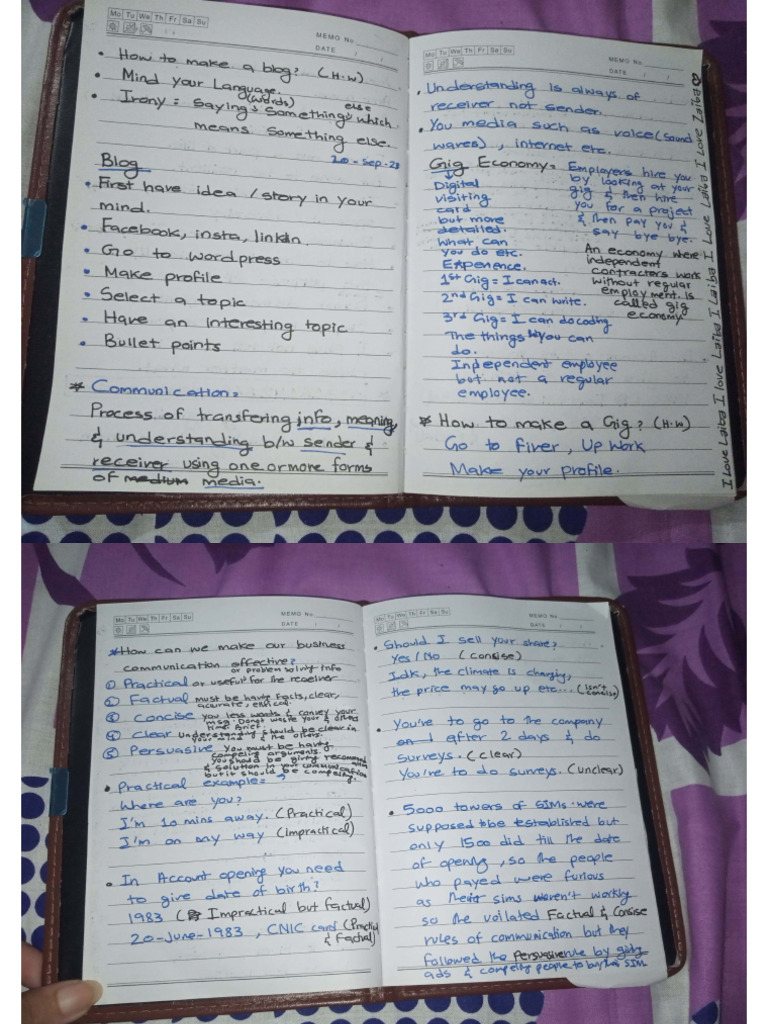 Mo Tu We Th Fr Sa Su
MEMO No.
DATE / /
• How to make a blog? (H.W)
• Mind your Language.
• Irony = saying (words) something else which
means something else.
20-Sep-23
Blog
• First have idea / story in your
mind.
• Facebook, insta, linkdn.
• Go to wordpress
• Make profile
• Select a topic
• Have an interesting topic
• Bullet points
* Communication =
Process of transfering info, meaning,
& understanding b/w sender &
receiver using one or more forms
of medium media.
Mo Tu We Th Fr Sa Su
MEMO No.
DATE / /
• Understanding is always of
receiver not sender.
• You media such as voice (sound
waves), internet etc.
Gig Economy =
Digital
visiting
card
but more
detailed.
what can
you do etc.
Experience.
1st Gig = I can act.
2nd Gig = I can write.
3rd Gig = I can do coding
The things you can
do.
Independent employee
but not a regular
employee.
Employers hire you
by looking at your
gig & then hire
you for a project
& then pay you &
say bye bye.
An economy where
independent
contractors work
without regular
employment is
called gig
economy
* How to make a Gig? (H.W)
Go to fiver, Up Work
Make your profile.
I Love Laiba I love Laiba I Love Laiba I Love Laiba I Love Laiba
Mo Tu We Th Fr Sa Su
MEMO No.
DATE / /
* How can we make our business
communication effective?
① Practical or useful for the receiver or problem solving info
② Factual must be having facts, clear,
acurate, ethical.
③ Concise you less words & convey your
msg. Don't waste your & others
time. Brief.
④ Clear understanding should be clear in
your mind & the others.
⑤ Persuasive You must be having
compeling arguments.
you should be giving recommendation
& solution in your communication
but it should be compeling.
• Practical example =
Where are you?
I'm 10 mins away. (Practical)
I'm on my way (impractical)
• In Account opening you need
to give date of birth?
1983 (Impractical but factual)
20-June-1983, CNIC card (Practical
& Factual)
Mo Tu We Th Fr Sa Su
MEMO No.
DATE / /
• Should I sell your share?
Yes / No (concise)
Idk, the climate is changing,
the price may go up etc... (isn't
concise)
• You're to go to the company
after 2 days & do
surveys. (clear)
You're to do surveys. (unclear)
• 5000 towers of SIMs were
supposed to be established but
only 1500 did till the date
of opening, so the people
who payed were furious
as sims weren't working
so the voilated Factual & Concise
rules of communication but they
followed the Persuasive rule by giving
ads & compeling people to buy SIM